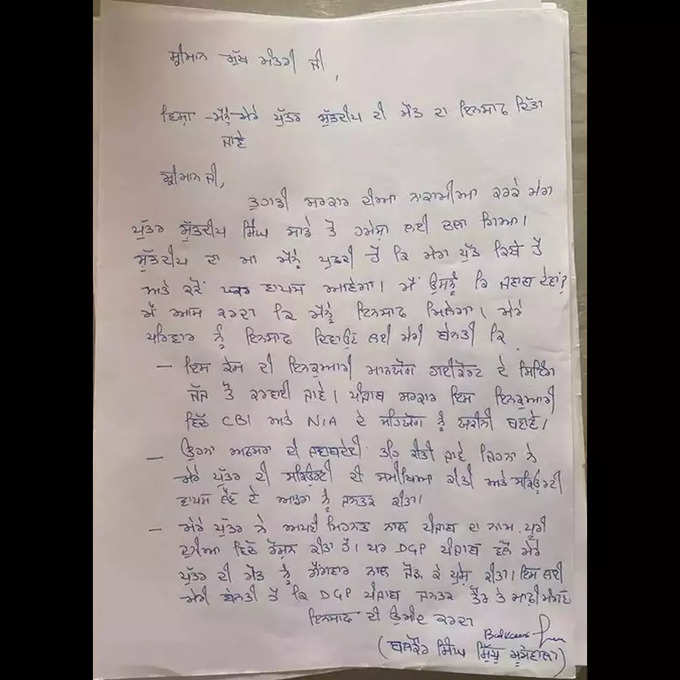 ਸ਼੍ਰੀਮਾਨ ਮੁੱਖ ਮੰਤਰੀ ਜੀ,
ਵਿਸ਼ਾ - ਮੈਨੂੰ ਮੇਰੇ ਪੁੱਤਰ ਸ਼ੁੱਭਦੀਪ ਦੀ ਮੌਤ ਦਾ ਇਨਸਾਫ ਦਿੱਤਾ
ਜਾਵੇ
ਸ਼੍ਰੀਮਾਨ ਜੀ,
ਤੁਹਾਡੀ ਸਰਕਾਰ ਦੀਆਂ ਨਾਕਾਮੀਆਂ ਕਰਕੇ ਮੇਰਾ
ਪੁੱਤਰ ਸ਼ੁੱਭਦੀਪ ਸਿੰਘ ਸਾਡੇ ਤੋਂ ਹਮੇਸ਼ਾ ਲਈ ਚਲਾ ਗਿਆ।
ਸ਼ੁੱਭਦੀਪ ਦਾ ਮਾਂ ਮੈਨੂੰ ਪੁਛਦੀ ਹੈ ਕਿ ਮੇਰਾ ਪੁੱਤ ਕਿਥੇ ਹੈ
ਅਤੇ ਕਦੋਂ ਵਾਪਸ ਆਵੇਗਾ। ਮੈਂ ਉਸਨੂੰ ਕਿ ਜਵਾਬ ਦੇਵਾਂ?
ਮੈਂ ਆਸ ਕਰਦਾ ਕਿ ਮੈਨੂੰ ਇਨਸਾਫ ਮਿਲੇਗਾ। ਮੇਰੇ
ਪਰਿਵਾਰ ਨੂੰ ਇਨਸਾਫ ਦਿਵਾਉਣ ਲਈ ਮੇਰੀ ਬੇਨਤੀ ਕਿ
- ਇਸ ਕੇਸ ਦੀ ਇਨਕੁਆਰੀ ਮਾਨਯੋਗ ਹਾਈਕੋਰਟ ਦੇ ਸਿਟਿੰਗ
ਜੱਜ ਤੋਂ ਕਰਵਾਈ ਜਾਵੇ। ਪੰਜਾਬ ਸਰਕਾਰ ਇਸ ਇਨਕੁਆਰੀ
ਵਿਚ CBI ਅਤੇ NIA ਦੇ ਸਹਿਯੋਗ ਨੂੰ ਯਕੀਨੀ ਬਣਾਵੇ।
- ਉਹਨਾਂ ਅਫਸਰਾਂ ਦੀ ਜਵਾਬਦੇਹੀ ਤਹਿ ਕੀਤੀ ਜਾਵੇ ਜਿਹਨਾ ਨੇ
ਮੇਰੇ ਪੁੱਤਰ ਦੀ ਸਕਿਉਰਟੀ ਦੀ ਸਮੀਖਿਆ ਕੀਤੀ ਅਤੇ ਸਕਿਉਰਟੀ
ਵਾਪਸ ਲੈਣ ਦੇ ਆਡਰਾਂ ਨੂੰ ਜਨਤਕ ਕੀਤਾ।
- ਮੇਰੇ ਪੁੱਤਰ ਨੇ ਅਪਣੀ ਮਿਹਨਤ ਨਾਲ ਪੰਜਾਬ ਦਾ ਨਾਮ ਪੂਰੀ
ਦੁਨੀਆ ਵਿਚ ਰੌਸ਼ਨ ਕੀਤਾ ਹੈ। ਪਰ DGP ਪੰਜਾਬ ਵਲੋਂ ਮੇਰੇ
ਪੁੱਤਰ ਦੀ ਮੌਤ ਨੂੰ ਗੈਂਗਵਾਰ ਨਾਲ ਜੋੜ ਕੇ ਪੇਸ਼ ਕੀਤਾ। ਇਸ ਲਈ
ਮੇਰੀ ਬੇਨਤੀ ਹੈ ਕਿ DGP ਪੰਜਾਬ ਜਨਤਕ ਤੌਰ ਤੇ ਮਾਫ਼ੀ ਮੰਗਣ
ਇਨਸਾਫ ਦੀ ਉਮੀਦ ਕਰਦਾ
(ਬਲਕੌਰ ਸਿੰਘ ਸਿੱਧੂ ਮੂਸੇਵਾਲਾ)